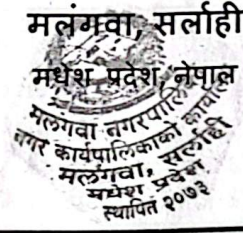 मलंगवा, सर्लाही
मधेश प्रदेश, नेपाल
मलंगवा नगरपालिका
नगर कार्यपालिकाको कार्यालय
मलंगवा, सर्लाही
मधेश प्रदेश
स्थापित २०७३